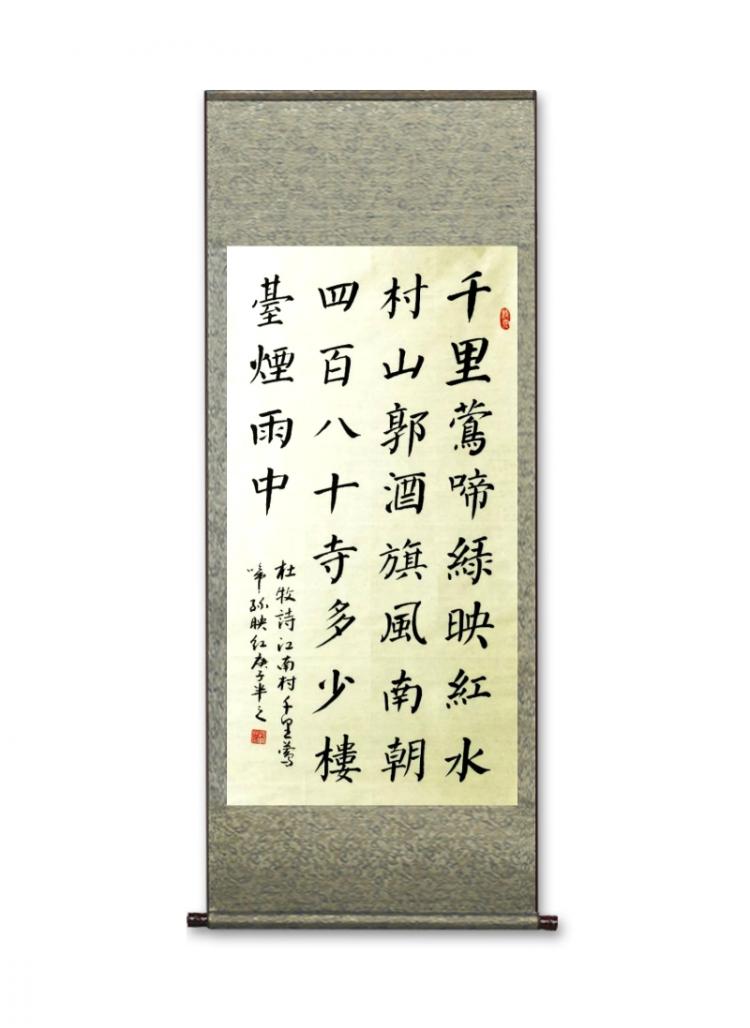 千里鶯啼綠映紅水
村山郭酒旗風南朝
四百八十寺多少樓
臺煙雨中
杜牧詩江南村千里鶯
啼綠映紅庚子半之